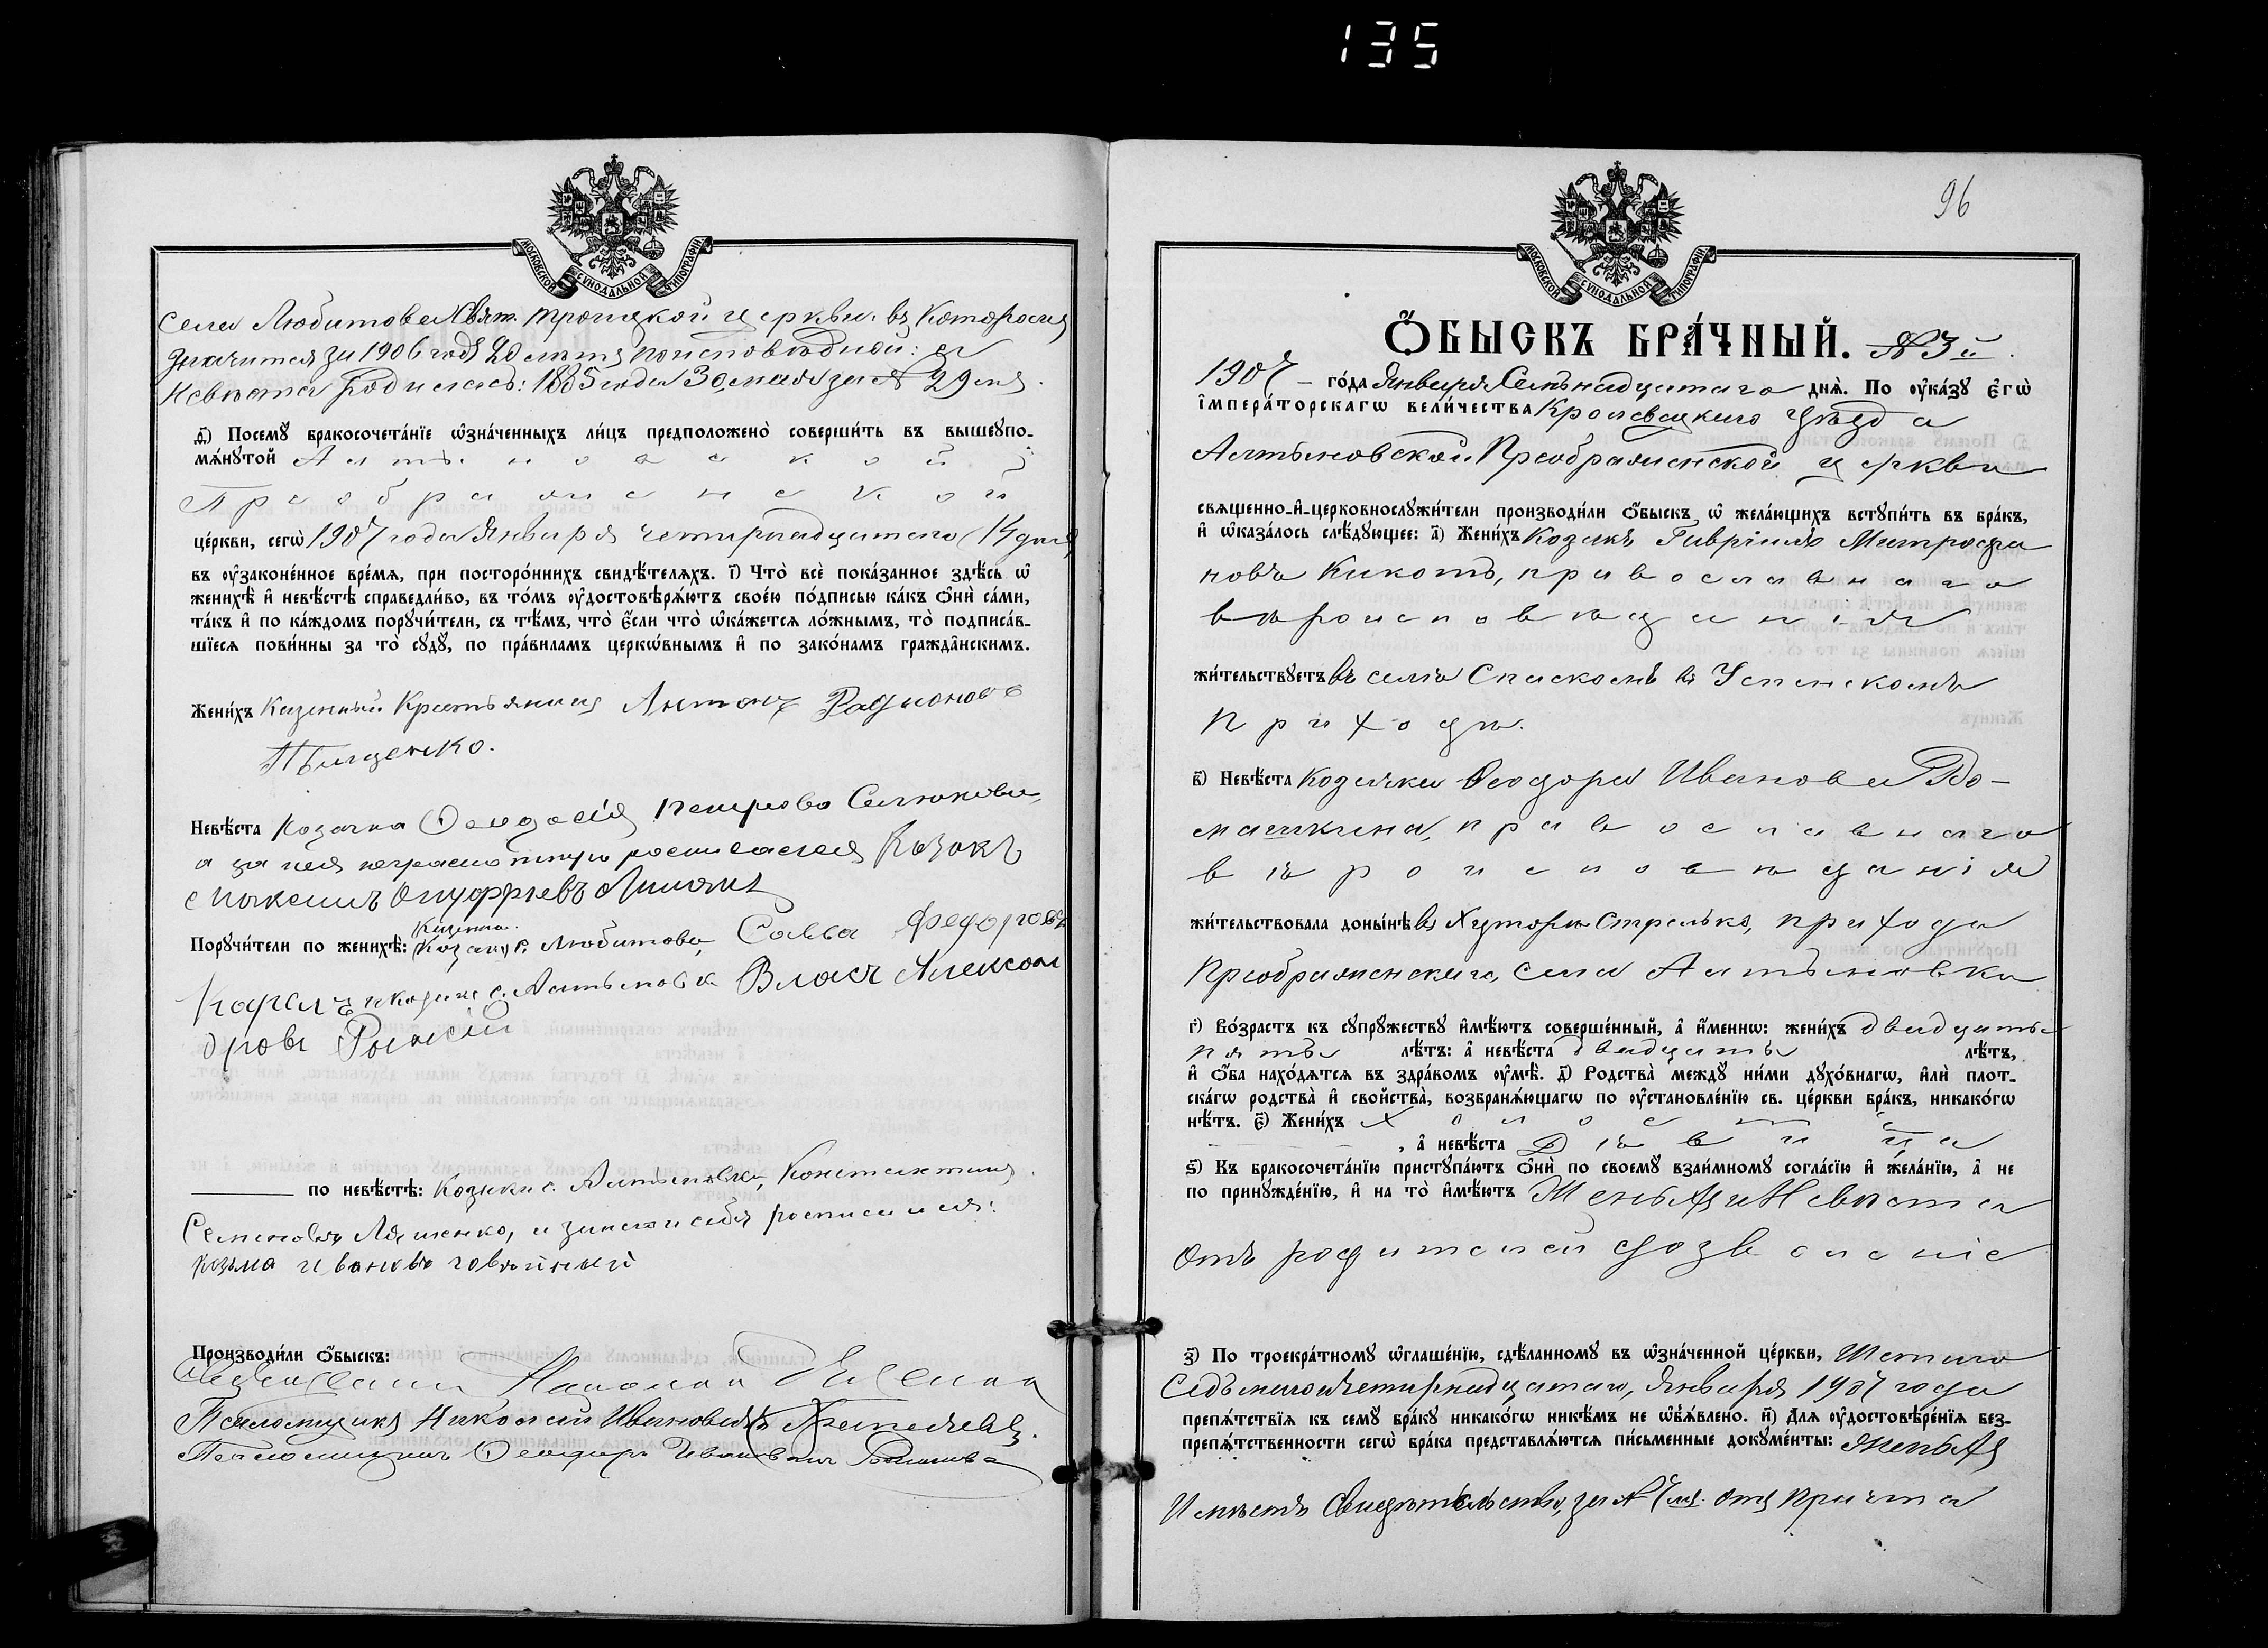 135
МОСКОВСКОЙ СѴНОДАЛЬНОЙ ТИПОГРАФІИ
села Любитова Свят. Троицкой церкви, въ которомъ
значится за 1906 годъ 20 лѣтъ по исповѣдной:
Невѣста родилась: 1885 года 30 мая за № 29мъ.
Посемꙋ бракосочета́нїе ѡ҆зна́ченныхъ ли́цъ предположено̀ соверши́ть въ вышеꙋпо-
мѧ́нꙋтой Алтыновской
Преображенской
це́ркви, сегѡ̀ 1907 года Января четырнадцатаго (14 дня)
въ ᲂу҆законе́нное вре́мѧ, при посторо́ннихъ свидѣ́телѧхъ. і҃) Что̀ всѐ пока́занное здѣ́сь ѡ҆
женихѣ̀ и҆ невѣ́стѣ справедли́во, въ то́мъ ᲂу҆достовѣрѧ́ютъ свое́ю по́дписью ка́къ ѻ҆нѝ са́ми,
та́къ и҆ по ка́ждомъ порꙋчи́тели, съ тѣ́мъ, что̀ є҆́сли что̀ ѡ҆ка́жетсѧ ло́жнымъ, то̀ подписа́в-
шїесѧ пови́нны за то̀ сꙋдꙋ̀, по пра́виламъ церкѡ́внымъ и҆ по зако́намъ гражда̂нскимъ.
Жени́хъ Казенный Крестьянинъ Антонъ Радионовъ
Пѣщенко.
Невѣ́ста Козачка Ѳеодосія Петрова Селюкова,
а за нея неграмотную росписался Козакъ
Онуфріевъ
Порꙋчи́тели по женихѣ̀: Козакъ с. Любитова, Савва Федоровъ
и козакъ с. Алтыновка Власъ Алексан
дровъ
по невѣ́стѣ: Козаки с. Алтыновки, Константинъ
Семеновъ Ляшенко, и за него и себя росписался:
Козьма Ивановъ
Производи́ли ѻ҆́быскъ:
Священникъ
Псаломщикъ Николай Ивановичъ
Псаломщикъ Ѳеодоръ Ивановичъ
96
МОСКОВСКОЙ СѴНОДАЛЬНОЙ ТИПОГРАФІИ
Ѻ҆́БЫСКЪ БРА́ЧНЫЙ. № 3й.
1907 – го́да Января Семьнадцатаго днѧ̀. По ᲂу҆ка́зꙋ є҆гѡ̀
і҆мпера́торскагѡ вели́чества Кролевецкаго уѣзда
Алтыновской Преображенской церкви
свѧщенно-и҆-церковнослꙋжи́тели производи́ли ѻ҆́быскъ ѡ҆ жела́ющихъ встꙋпи́ть въ бра́къ,
и҆ ѡ҆каза́лось слѣ́дꙋющее: а҃) Жени́хъ Козакъ Гавріилъ Митрофа
новъ Кикоть, православнаго
вѣроисповѣданія
жи́тельствꙋетъ въ селѣ Спаскомъ въ Успенскомъ
приходѣ.
в҃) Невѣ́ста Козачка Ѳеодора Иванова Ро-
машкина, православнаго
вѣроисповѣданія
жи́тельствовала доны́нѣ въ Хуторѣ Стрелько, прихода
Преображенскаго, села Алтыновка
г҃) Во́зрастъ къ сꙋпрꙋ́жествꙋ и҆мѣ́ютъ соверше́нный, а҆ и҆́меннѡ: жени́хъ двадцать
пять лѣ́тъ: а҆ невѣ́ста двадцать лѣ́тъ,
и҆ ѻ҆́ба нахо́дѧтсѧ въ здра́вомъ ᲂу҆мѣ̀. д҃) Родства̀ междꙋ̀ ни́ми дꙋхо́внагѡ, и҆лѝ плот-
ска́гѡ родства̀ и҆ сво́йства, возбранѧ́ющагѡ по ᲂу҆становле́нїю св. це́ркви бра́къ, никако́гѡ
нѣ́тъ. є҃) Жени́хъ Холостъ
, а҆ невѣ́ста Дѣвица
ѕ҃) Къ бракосочета́нїю пристꙋпа́ютъ ѻ҆нѝ по своемꙋ̀ взаи́мномꙋ согла́сїю и҆ жела́нїю, а҆ не
по принꙋжде́нїю, и҆ на то̀ и҆мѣ́ютъ Женихъ и Невѣста
отъ родителей дозволеніе
з҃) По троекра́тномꙋ ѡ҆глаше́нїю, сдѣ́ланномꙋ въ ѡ҆зна́ченной це́ркви, Шестаго
Седьмаго и Четырнадцатаго, Января 1907 года
препѧ́тствїѧ къ семꙋ̀ бра́кꙋ никако́гѡ никѣ́мъ не ѡ҆б̾ѧ́влено. и҃) Длѧ ᲂу҆достовѣре́нїѧ без-
препѧ́тственности сегѡ̀ бра́ка представлѧ́ютсѧ пи́сьменные докꙋме́нты: Женихъ
Имѣетъ Свидѣтельство, за № 7мъ. отъ причта